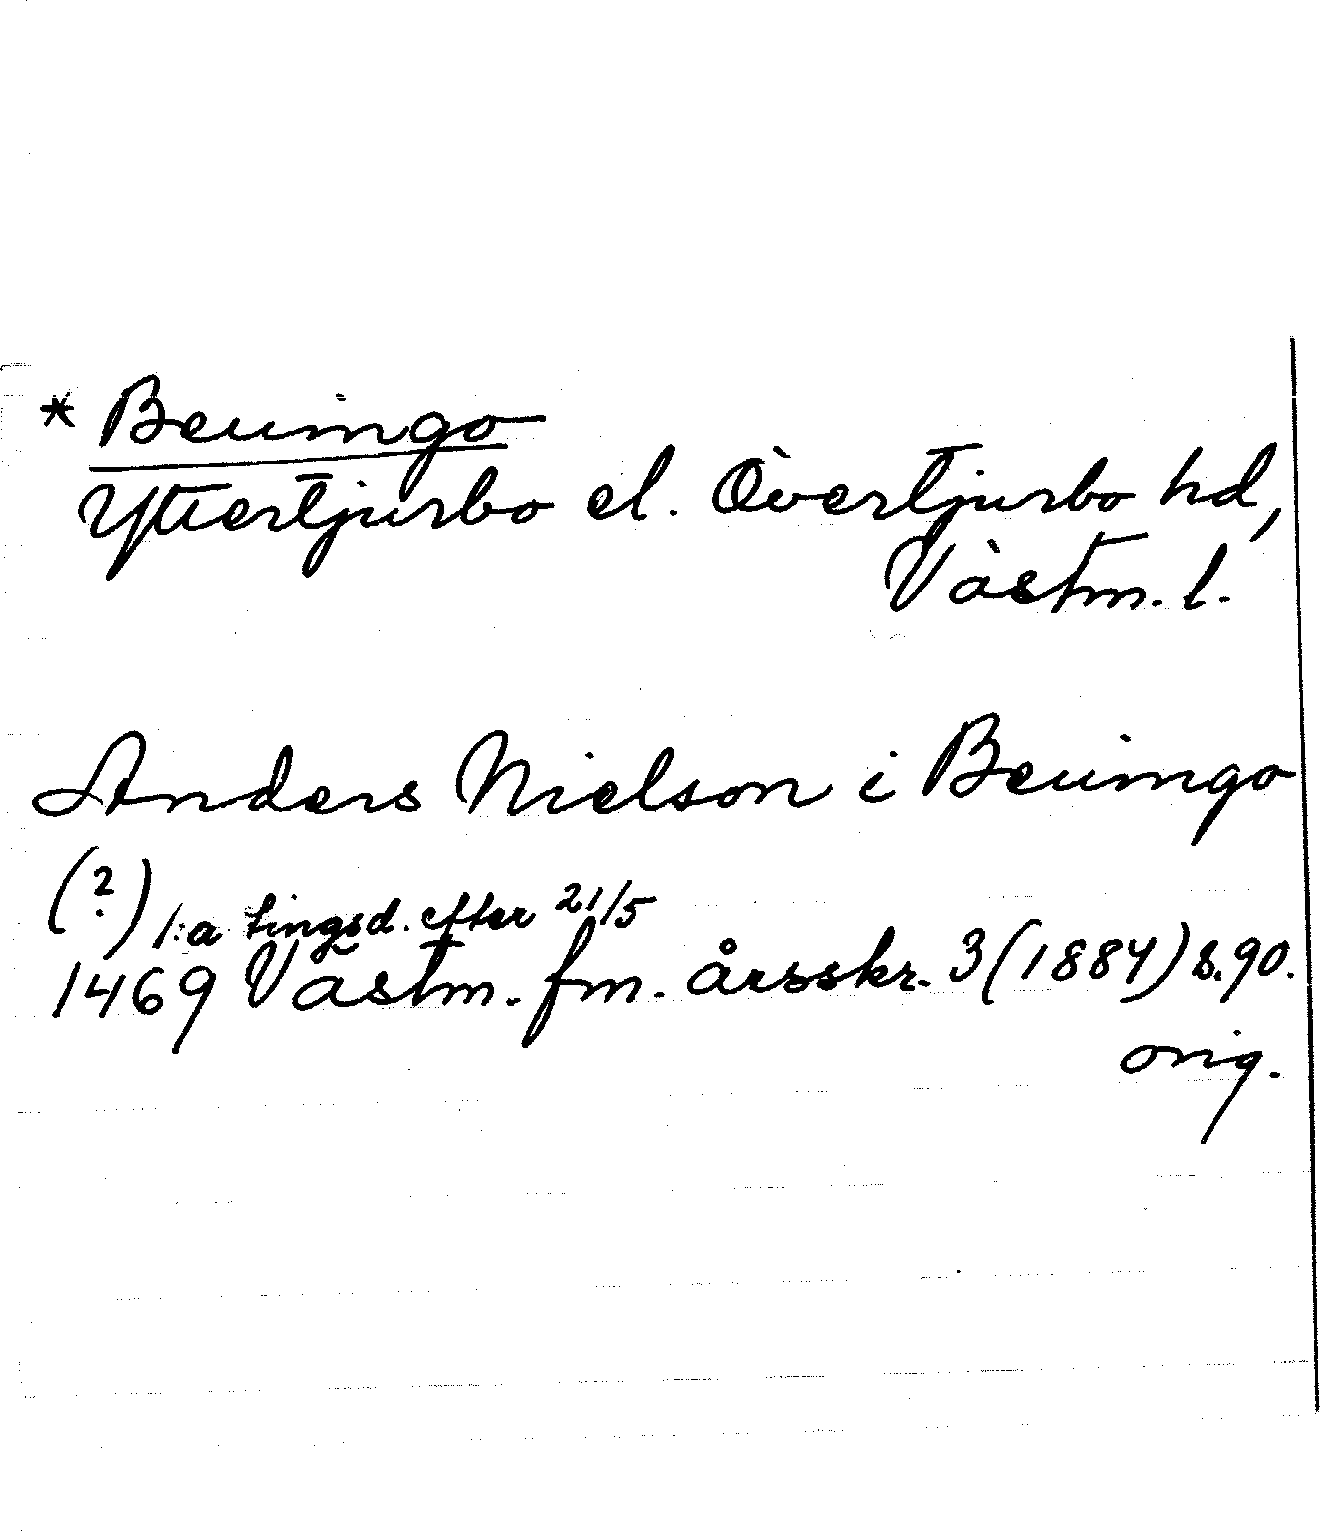 * Beuimgo
Yttertjurbo el. Övertjurbo hd,
Västm. l.
Anders Nielson i Beuimgo
(?) 1:a tingsd. efter 21/5
1469 Västm. fm. årsskr. 3 (1884) s. 90.
orig.